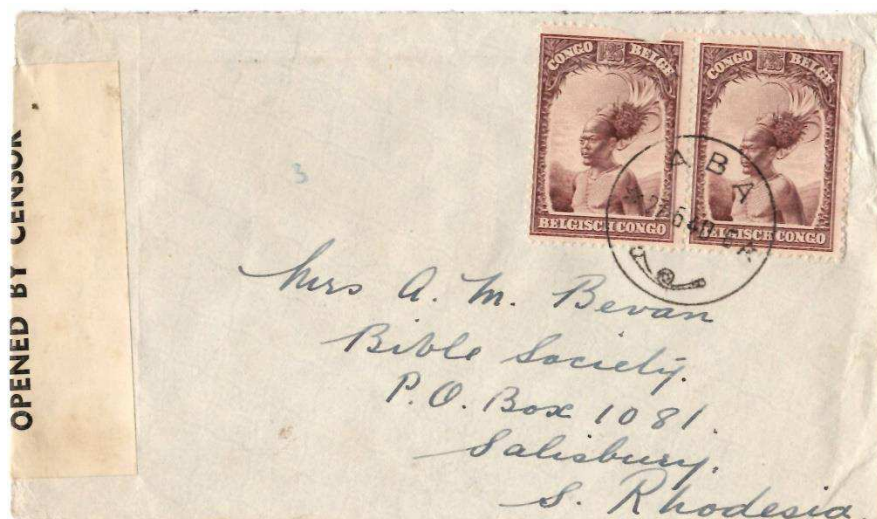 OPENED BY CENSOR
CONGO BELGE
BELGISCH CONGO
CONGO BELGE
BELGISCH CONGO
ABA
Mrs A. M. Bevan
Bible Society.
P.O. Box 1081.
Salisbury.
S. Rhodesia.
3